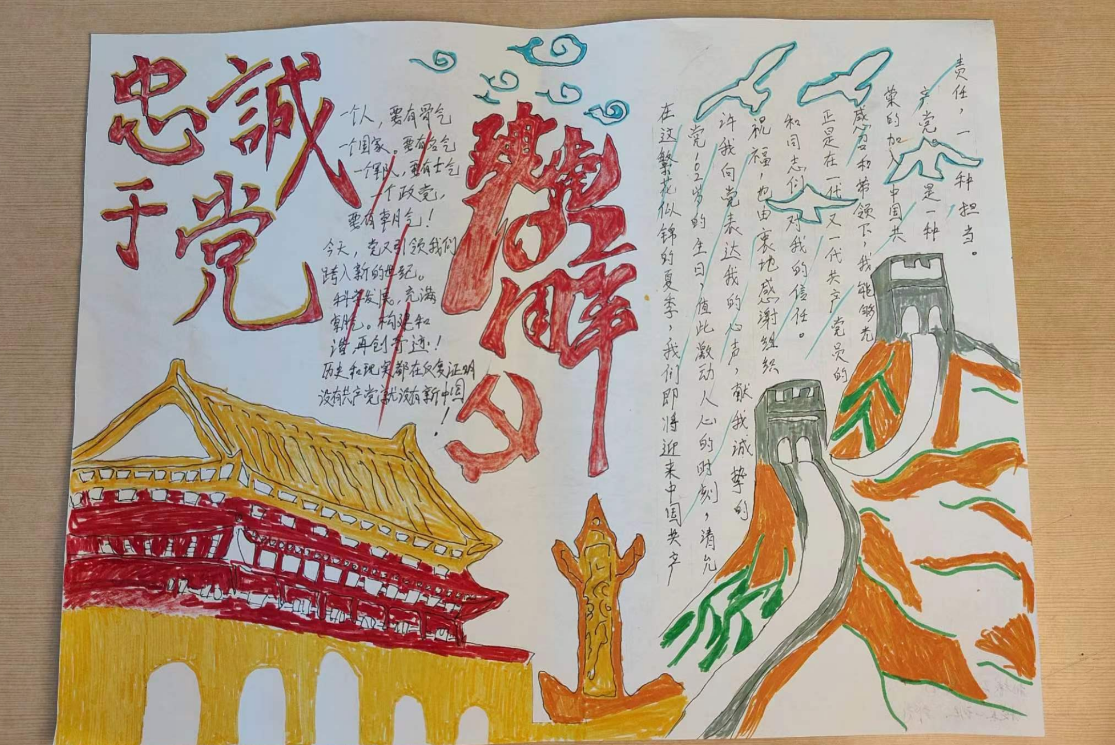 忠誠
于党
一个人，要有骨气
一个国家，要有气
一个军队，要有士气
个政党，
要有朝气！
今天，党又引领我们
跨入新的世纪。
科学发展，充满
朝气。构建和
谐再创奇迹！
历史和现实都在反复证明
没有共产党就没有新中国
！
在这繁花似锦的夏季，我们即将迎来中国共产
党岁的生日，值此激动人心的时刻，请允
许我向党表达我的心声，献我诚挚的
祝福，也由衷地感谢组织
和同志们对我的信任。
正是在一代又一代共产党员的
感召和带领下，我能够光
荣的加入中国共
产党，是一种
责任，一种担当。